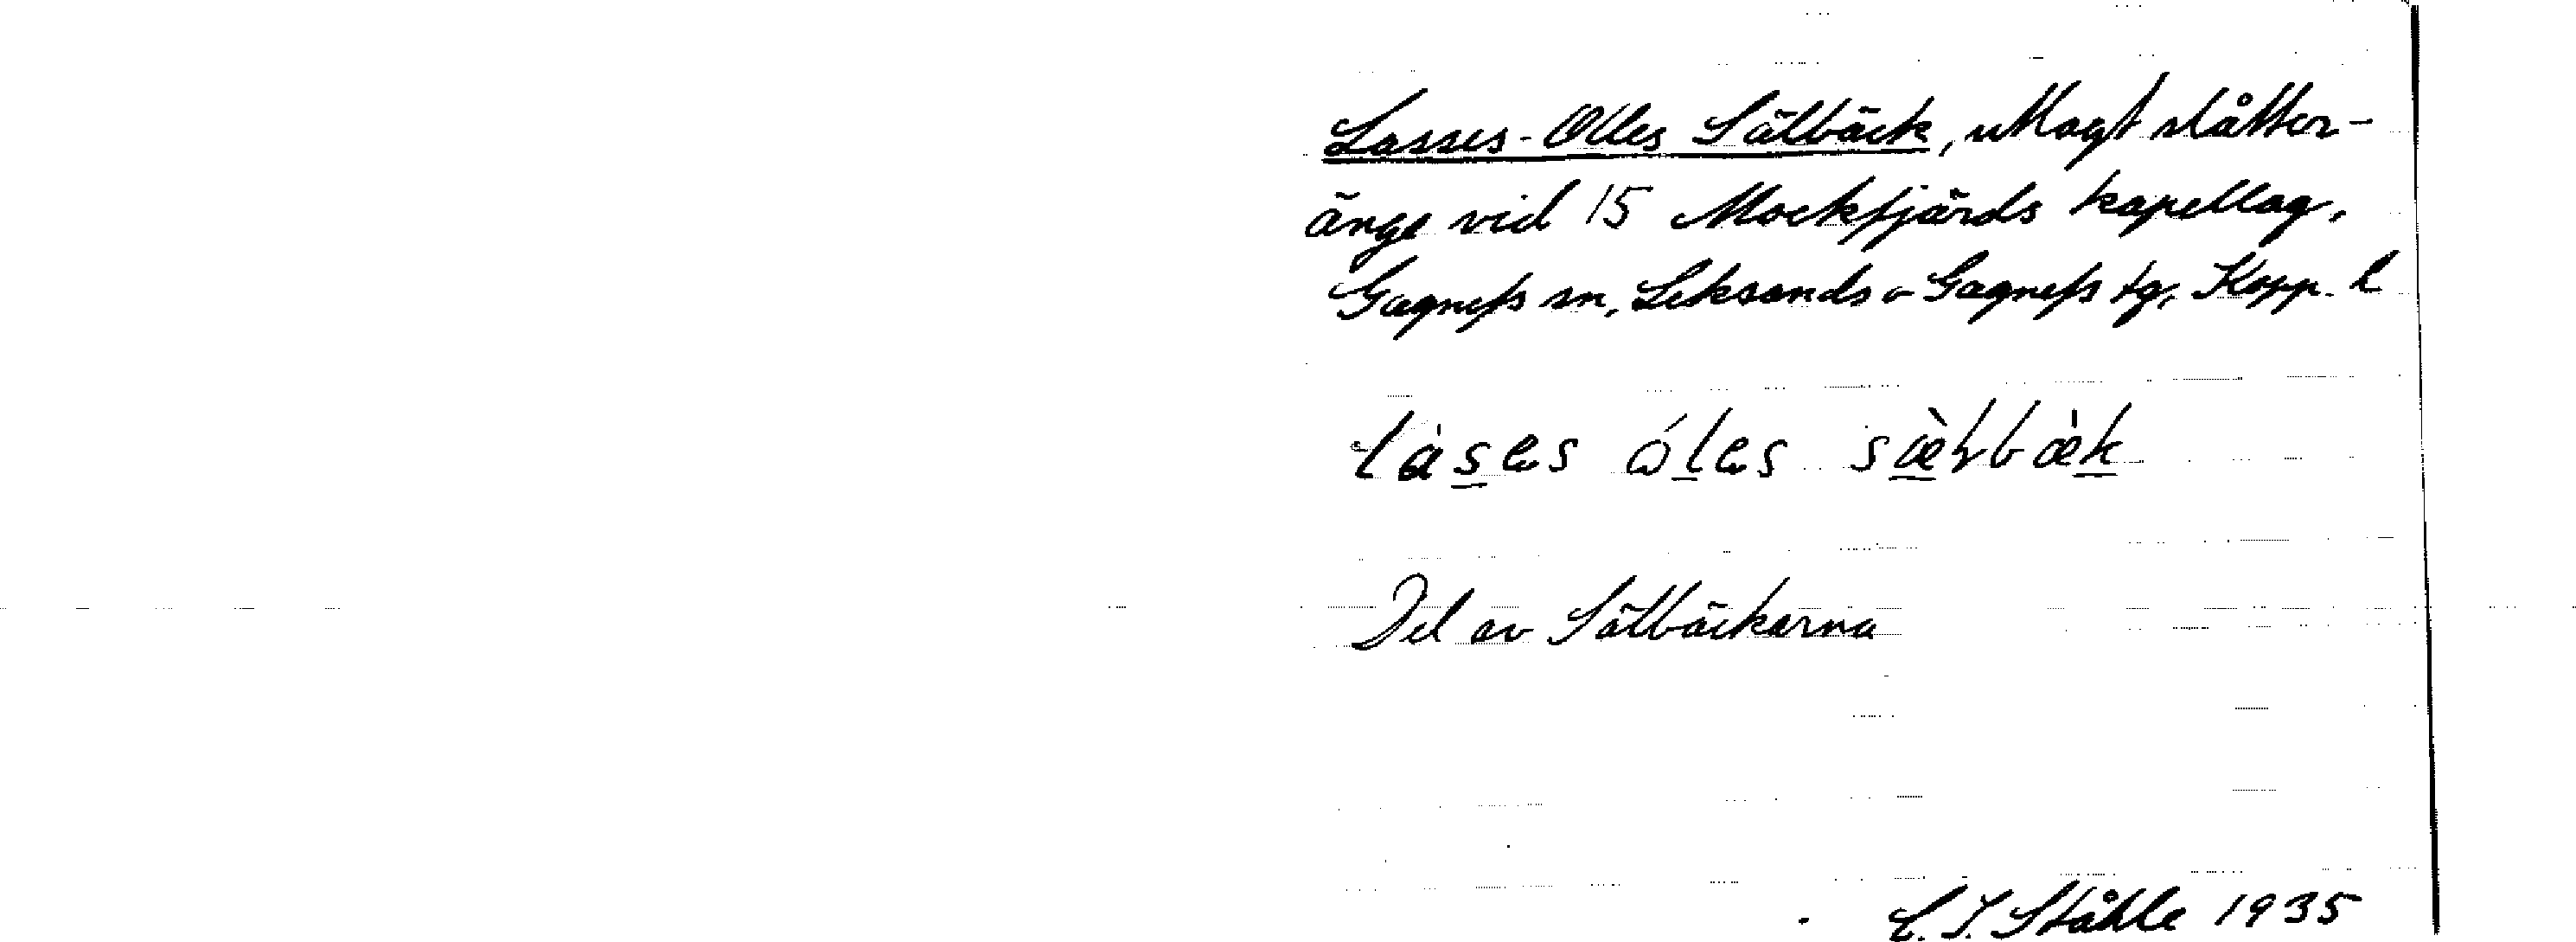 Lasses-Olles Sälbäck, utlagt slåtter-
änge vid 15 Mockfjärds kapellag,
Gagnefs sn, Leksands o Gagnefs tg, Kopp. l
làses óles sæ̀ɽbæ̀k
Del av Sälbäckarna
C.I. Ståhle 1935